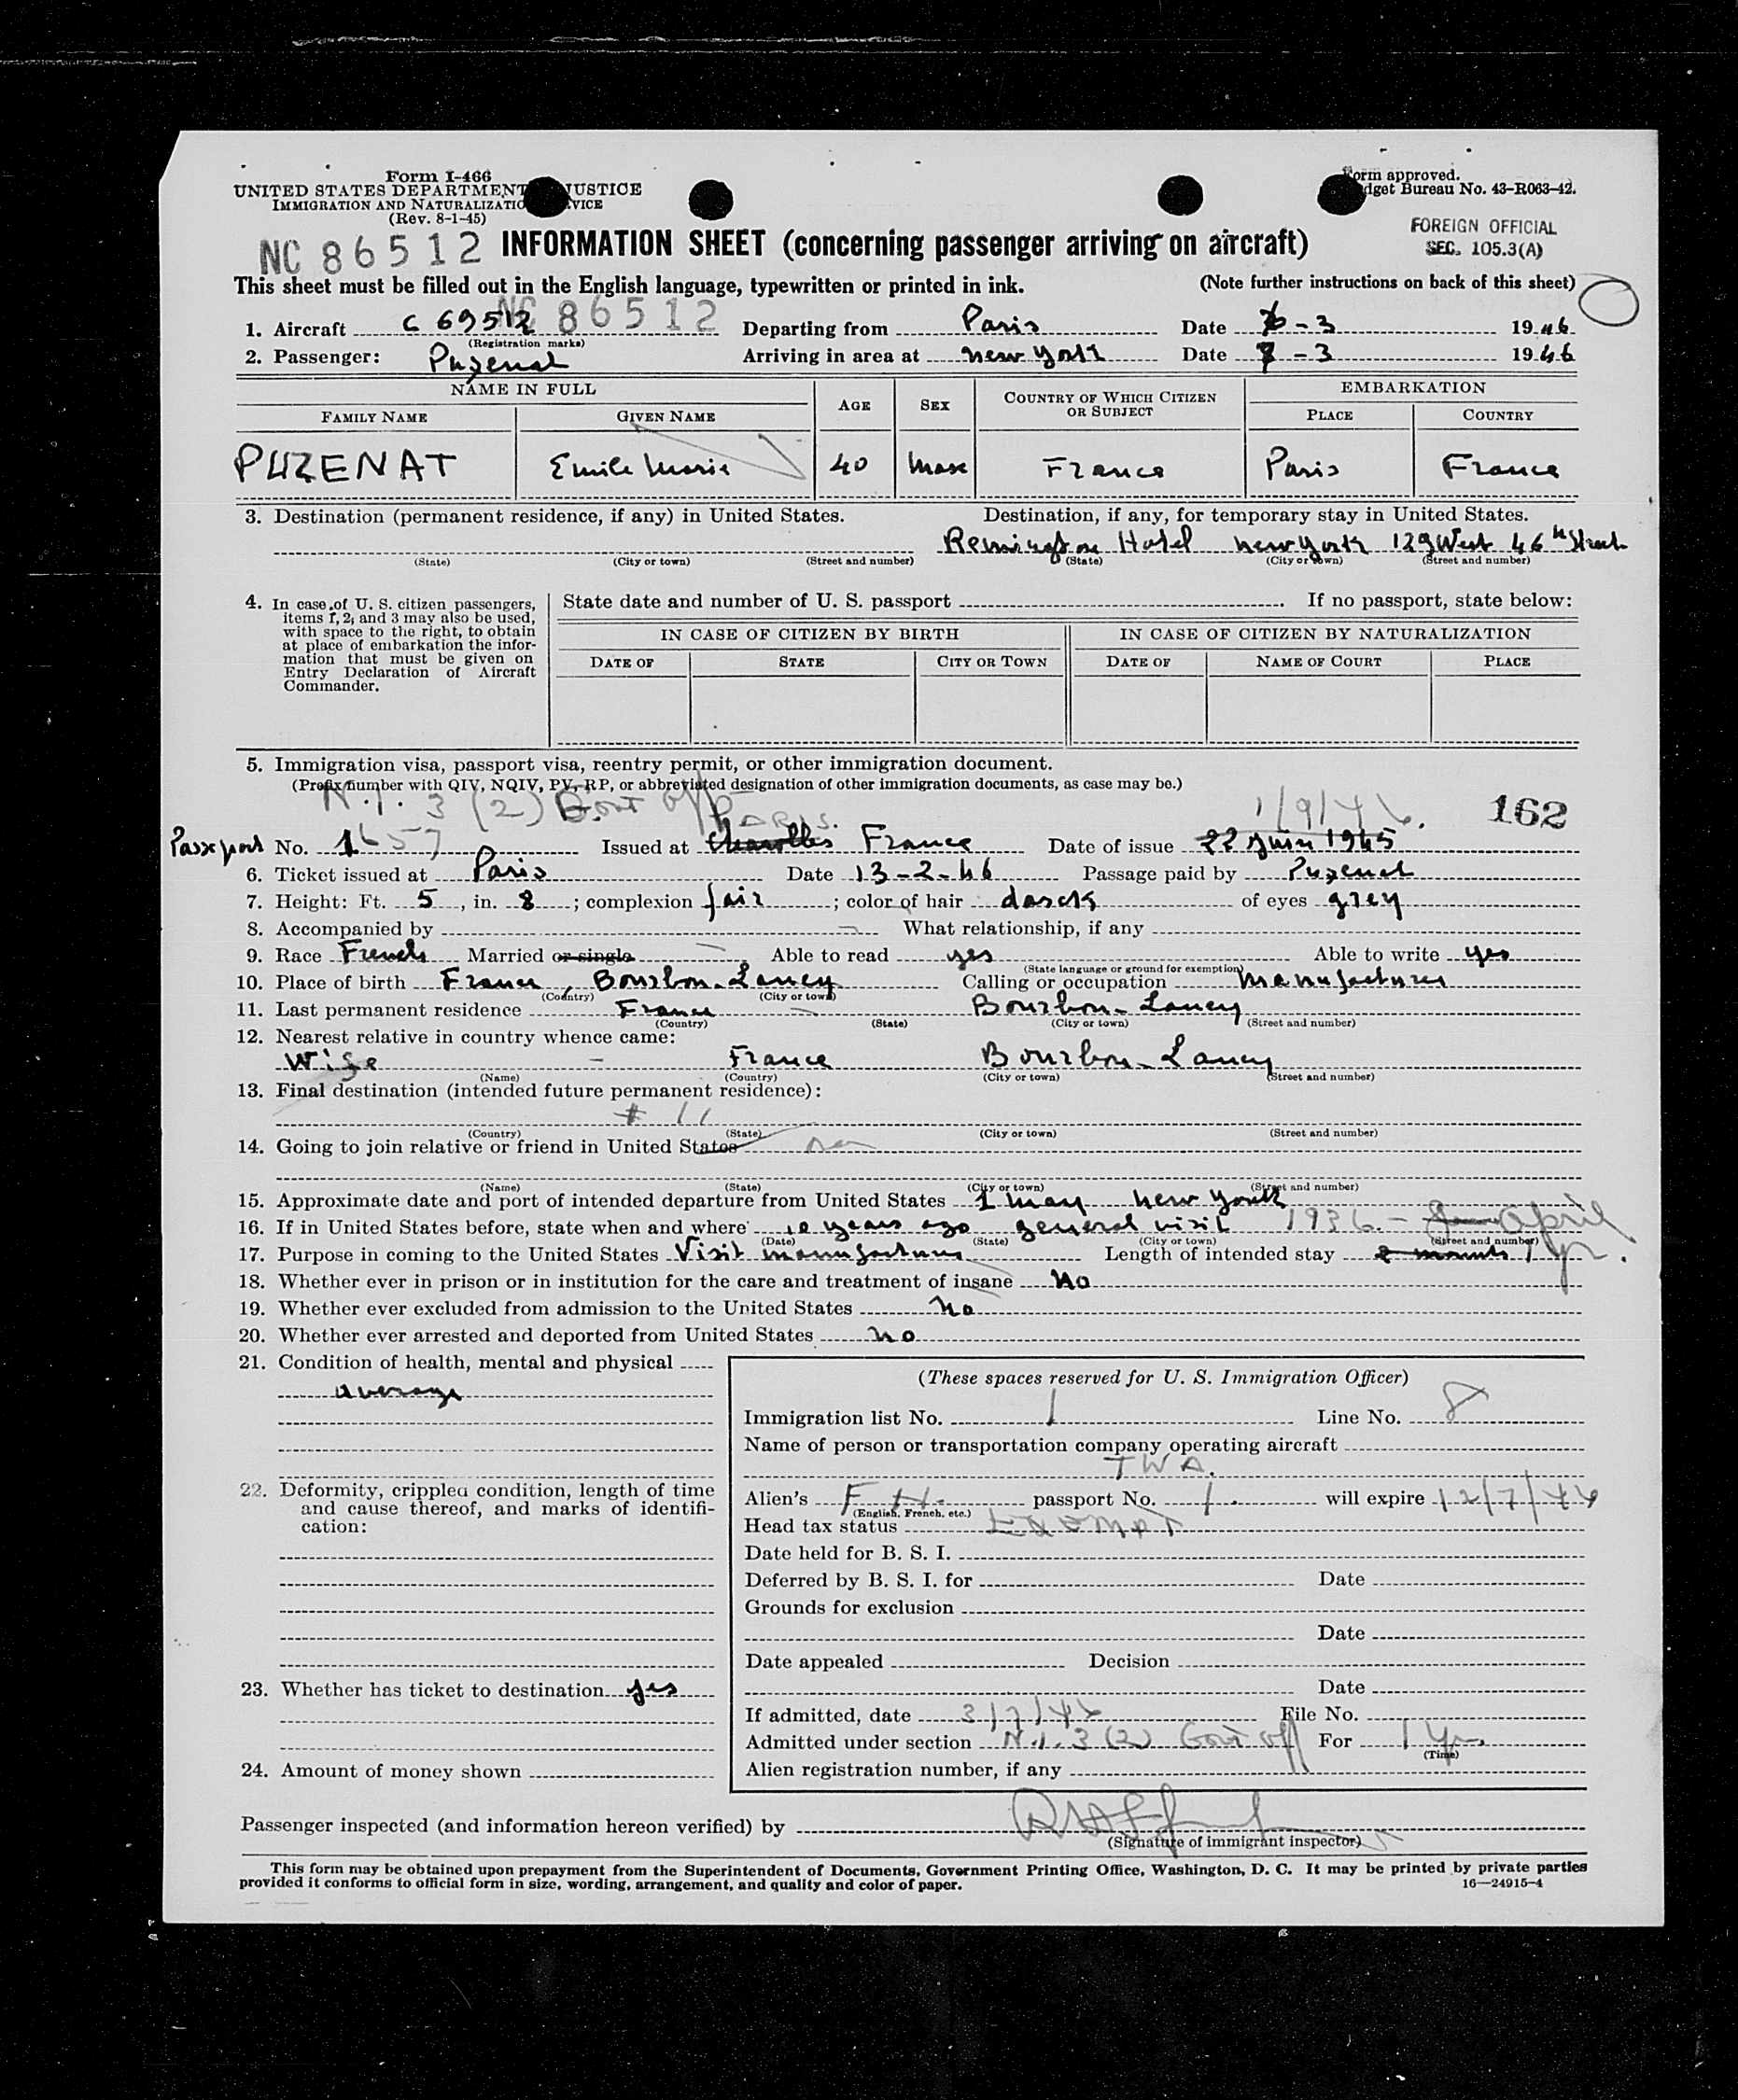 Form I-466
UNITED STATES DEPARTMENT JUSTICE
IMMIGRATION AND NATURALIZATIO VICE
(Rev. 8-1-45)
Form approved.
dget Bureau No. 43-R063-42.
FOREIGN OFFICIAL
SEC. 105.3(A)
NC 86512 INFORMATION SHEET (concerning passenger arriving on aircraft)
This sheet must be filled out in the English language, typewritten or printed in ink. (Note further instructions on back of this sheet)
1. Aircraft C 69512 NC 86512 Departing from Paris Date 6-3 1946
(Registration marks)
2. Passenger: Puzenat Arriving in area at new york Date 7-3 1946
NAME IN FULL AGE SEX COUNTRY OF WHICH CITIZEN OR SUBJECT EMBARKATION
FAMILY NAME GIVEN NAME PLACE COUNTRY
PUZENAT Emile Marie 40 masc France Paris France
3. Destination (permanent residence, if any) in United States. Destination, if any, for temporary stay in United States.
Remington Hotel new york 129 West 46th Street
(State) (City or town) (Street and number) (State) (City or town) (Street and number)
4. In case of U. S. citizen passengers, items 1, 2, and 3 may also be used, with space to the right, to obtain at place of embarkation the information that must be given on Entry Declaration of Aircraft Commander.
State date and number of U. S. passport If no passport, state below:
IN CASE OF CITIZEN BY BIRTH IN CASE OF CITIZEN BY NATURALIZATION
DATE OF STATE CITY OR TOWN DATE OF NAME OF COURT PLACE
5. Immigration visa, passport visa, reentry permit, or other immigration document.
(Prefix number with QIV, NQIV, PV, RP, or abbreviated designation of other immigration documents, as case may be.)
N.I. 3 (2) Govt Off PARIS. 1/9/46. 162
Passport No. 1657 Issued at Charolles France Date of issue 22 Juin 1945
6. Ticket issued at Paris Date 13-2-46 Passage paid by Puzenat
7. Height: Ft. 5, in. 8; complexion fair; color of hair darck of eyes grey
8. Accompanied by What relationship, if any
9. Race French Married or single Able to read yes Able to write yes
(State language or ground for exemption)
10. Place of birth France, Bourbon-Lancy Calling or occupation manufacturer
(Country) (City or town)
11. Last permanent residence France Bourbon-Lancy
(Country) (State) (City or town) (Street and number)
12. Nearest relative in country whence came:
Wife - France Bourbon-Lancy
(Name) (Country) (City or town) (Street and number)
13. Final destination (intended future permanent residence):
# 11
(Country) (State) (City or town) (Street and number)
14. Going to join relative or friend in United States no
(Name) (State) (City or town) (Street and number)
15. Approximate date and port of intended departure from United States 1 may new york
16. If in United States before, state when and where 10 years ago general visit 1936 - April
(Date) (State) (City or town) (Street and number)
17. Purpose in coming to the United States Visit manufactures Length of intended stay 2 months 1 yr.
18. Whether ever in prison or in institution for the care and treatment of insane No
19. Whether ever excluded from admission to the United States no
20. Whether ever arrested and deported from United States no
21. Condition of health, mental and physical
average
22. Deformity, crippled condition, length of time and cause thereof, and marks of identification:
23. Whether has ticket to destination yes
24. Amount of money shown
(These spaces reserved for U. S. Immigration Officer)
Immigration list No. 1 Line No. 8
Name of person or transportation company operating aircraft
TWA.
Alien's passport No. 1. will expire 12/7/46
(English, French, etc.)
Head tax status EXEMPT
Date held for B. S. I.
Deferred by B. S. I. for Date
Grounds for exclusion
Date
Date appealed Decision
Date
If admitted, date 3/7/46 File No.
Admitted under section N.I. 3 (2) Govt off For 1 Yr.
(Time)
Alien registration number, if any
Passenger inspected (and information hereon verified) by
(Signature of immigrant inspector)
This form may be obtained upon prepayment from the Superintendent of Documents, Government Printing Office, Washington, D. C. It may be printed by private parties
provided it conforms to official form in size, wording, arrangement, and quality and color of paper. 16—24915-4